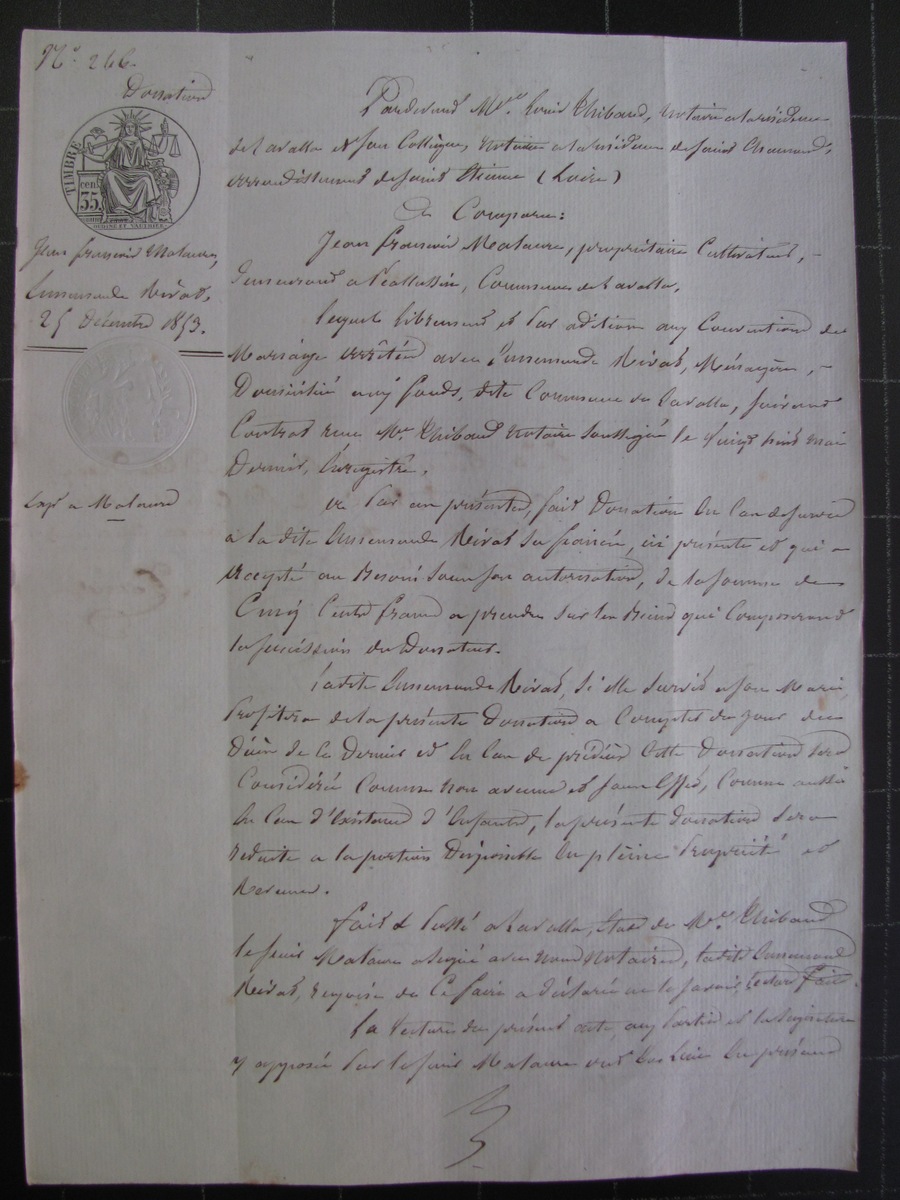 N.º 266.
Donation
TIMBRE
35 cent
Jean françois Mataure,
Ennemonde Rivat,
25 Décembre 1853.
Exp. a Mataure
Pardevant Mtre. Louis Thibaud, notaire a la résidence
de Lavalla et son Collègue, notaire a la résidence de Saint Chamond,
arrondissement de Saint Etienne (Loire)
A Comparu:
Jean François Mataure, propriétaire Cultivateur,
demeurant a Commune de Lavalla,
lequel librement et par adition aux Conventions de
Mariage arrêtées avec Ennemonde Rivat, Ménagère,
Domiciliée aux fonds, dite Commune de Lavalla, suivant
Contrat reçu Me. Thibaud notaire soussigné le vingt huit mai
Dernier, Enregistré.
a par ces présentes, fait Donation En Cas de survie
a la dite Ennemonde Rivat sa fiancée, ici présente et qui a
accepté au Besoin sous son autorisation, de la somme de
Cinq Cents francs a prendre sur les Biens qui Composeront
la succéssion du Donateur.
Ladite Ennemonde Rivat, si elle survit a son Mari,
Profitera de la présente Donation a Compter du jour du
Décès de ce Dernier et En Cas de prédécès Cette Donation sera
Considérée Comme non avenue et sans Effet, Comme aussi
En Cas d'Existence d'Enfants, la présente Donation sera
réduite a la portion Disponible En pleine Propriété et
Fait & Passé a Lavalla, Etude de Me. Thibaud
le sieur Mataure a signé avec nous Notaires, ladite Ennemonde
Rivat, requise de Ce faire a déclaré ne le savoir, lecture faite.
La Lecture du présent acte aux Parties et la Signature
y apposée Par le sieur Mataure ont Eu Lieu En présence